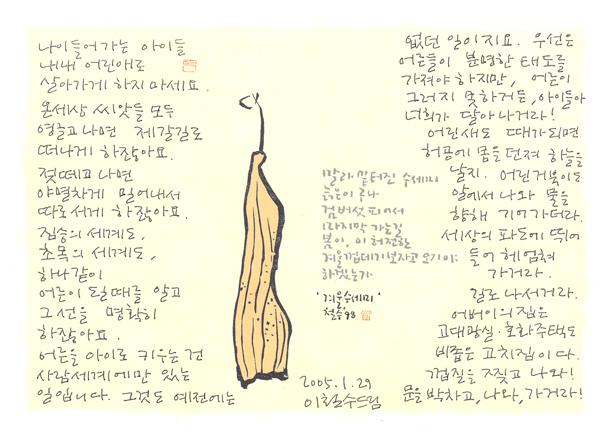 나이들어가는 아이들
내내 어린애로
살아가게 하지 마세요.
온세상 씨앗들 모두
영글고 나면 제 갈길로
떠나게 하잖아요.
젖떼고 나면
야멸차게 밀어내서
따로서게 하잖아요.
짐승의 세계도,
초목의 세계도,
하나같이
어른이 될 때를 알고
그 선을 명확히
하잖아요.
어른을 아이로 키우는 건
사람세계에만 있는
일입니다. 그것도 예전에는
말라 밑 터진 수세미
늙은이 하나
검버섯 피어서
마지막 가는길
봄이, 이 허전한
겨울껍데기 보자고 오기야
하겠는가
'겨울수세미'
철수 '98
2005.1.29
이철수드림
없던 일이지요. 우선은
어른들이 분명한 태도를
가져야 하지만, 어른이
그러지 못하거든, 아이들아
너희가 달아나거라!
어린새도 때가 되면
허공에 몸을 던져 하늘을
날지. 어린 거북이도
알에서 나와 물을
향해 기어가더라.
세상의 파도에 뛰어
들어 헤엄쳐
가거라.
길로 나서거라.
어버이의 집은
고대광실·호화주택도
비좁은 고치집이다.
껍질을 찢고 나와!
문을 박차고, 나와, 가거라!